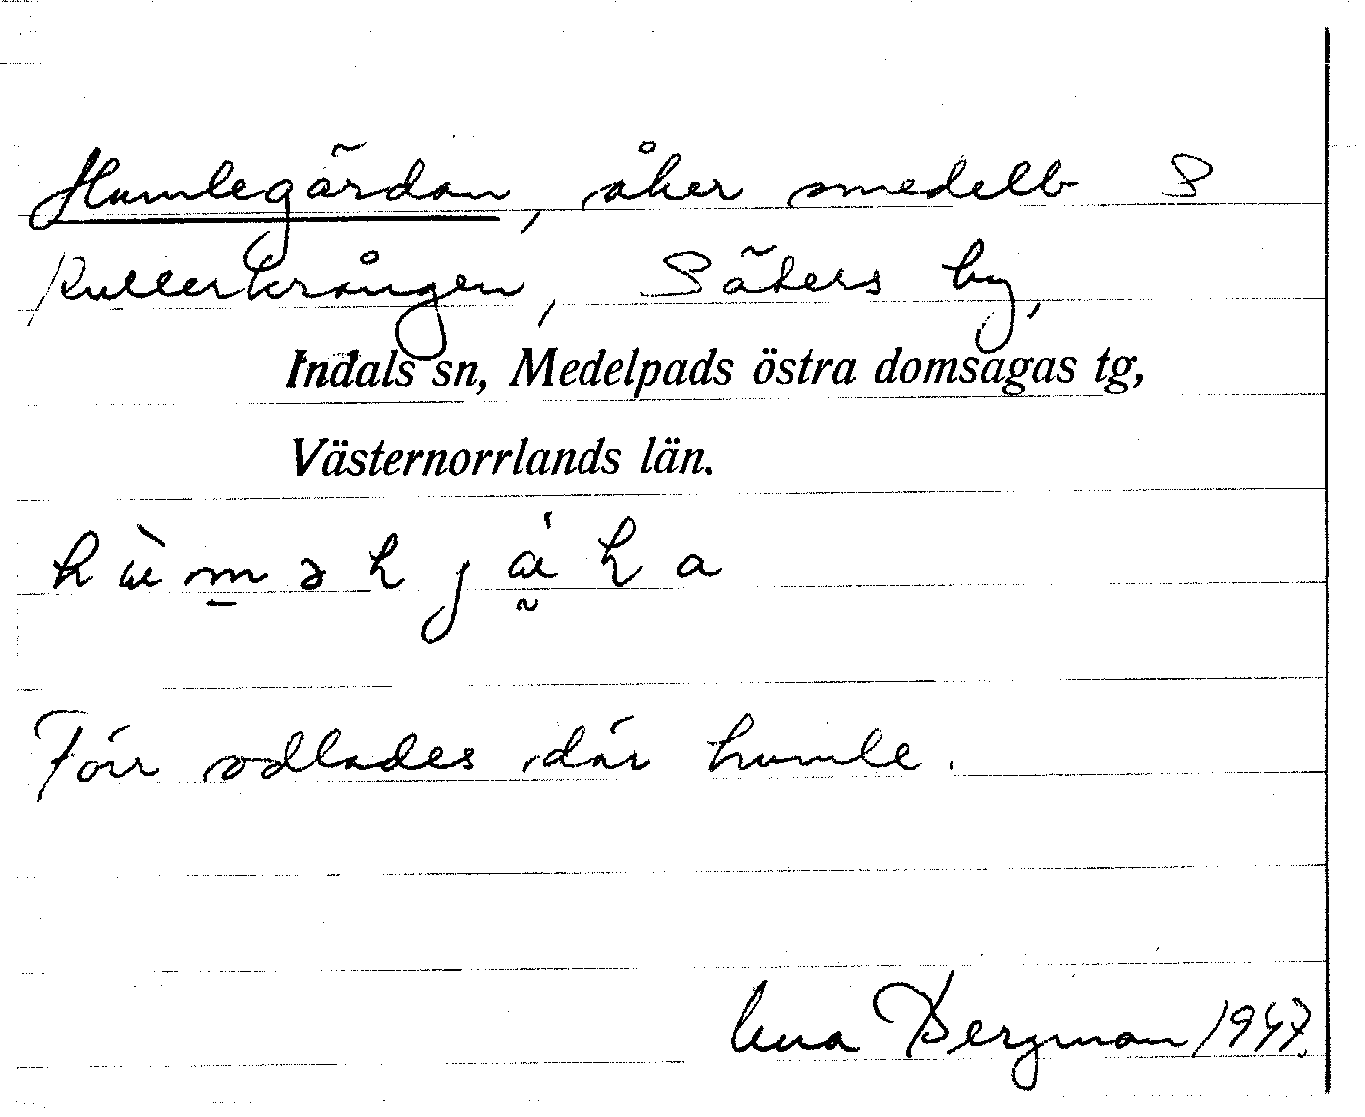 Humlegärdan, åker omedelb S
Rullerkrången, Säters by,
Indals sn, Medelpads östra domsagas tg,
Västernorrlands län.
Förr odlades där humle.
Bergman 1947.